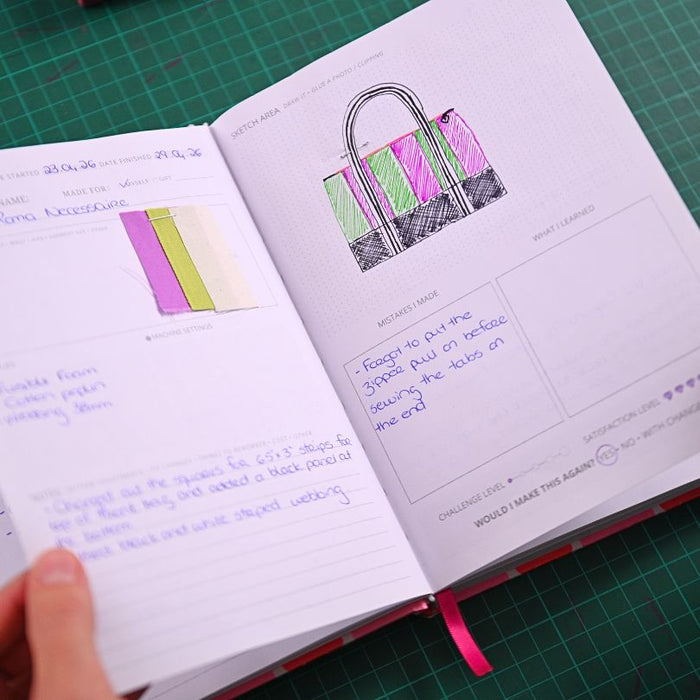 STARTED 23.04.26 DATE FINISHED 29.04.26
NAME: MADE FOR: MYSELF GIFT
Roma Necessaire
MACHINE SETTINGS
Fusible Foam
Cotton poplin
Webbing 38mm
NOTES
- Changed out the squares for 6.5"x3" strips for
and added a black panel at
bottom
black and white striped webbing
SKETCH AREA DRAW IT • GLUE A PHOTO / CLIPPING
MISTAKES I MADE
- Forgot to put the
zipper pull on before
sewing the tabs on
the end
WHAT I LEARNED
CHALLENGE LEVEL
SATISFACTION LEVEL
WOULD I MAKE THIS AGAIN? YES • NO • WITH CHANGES